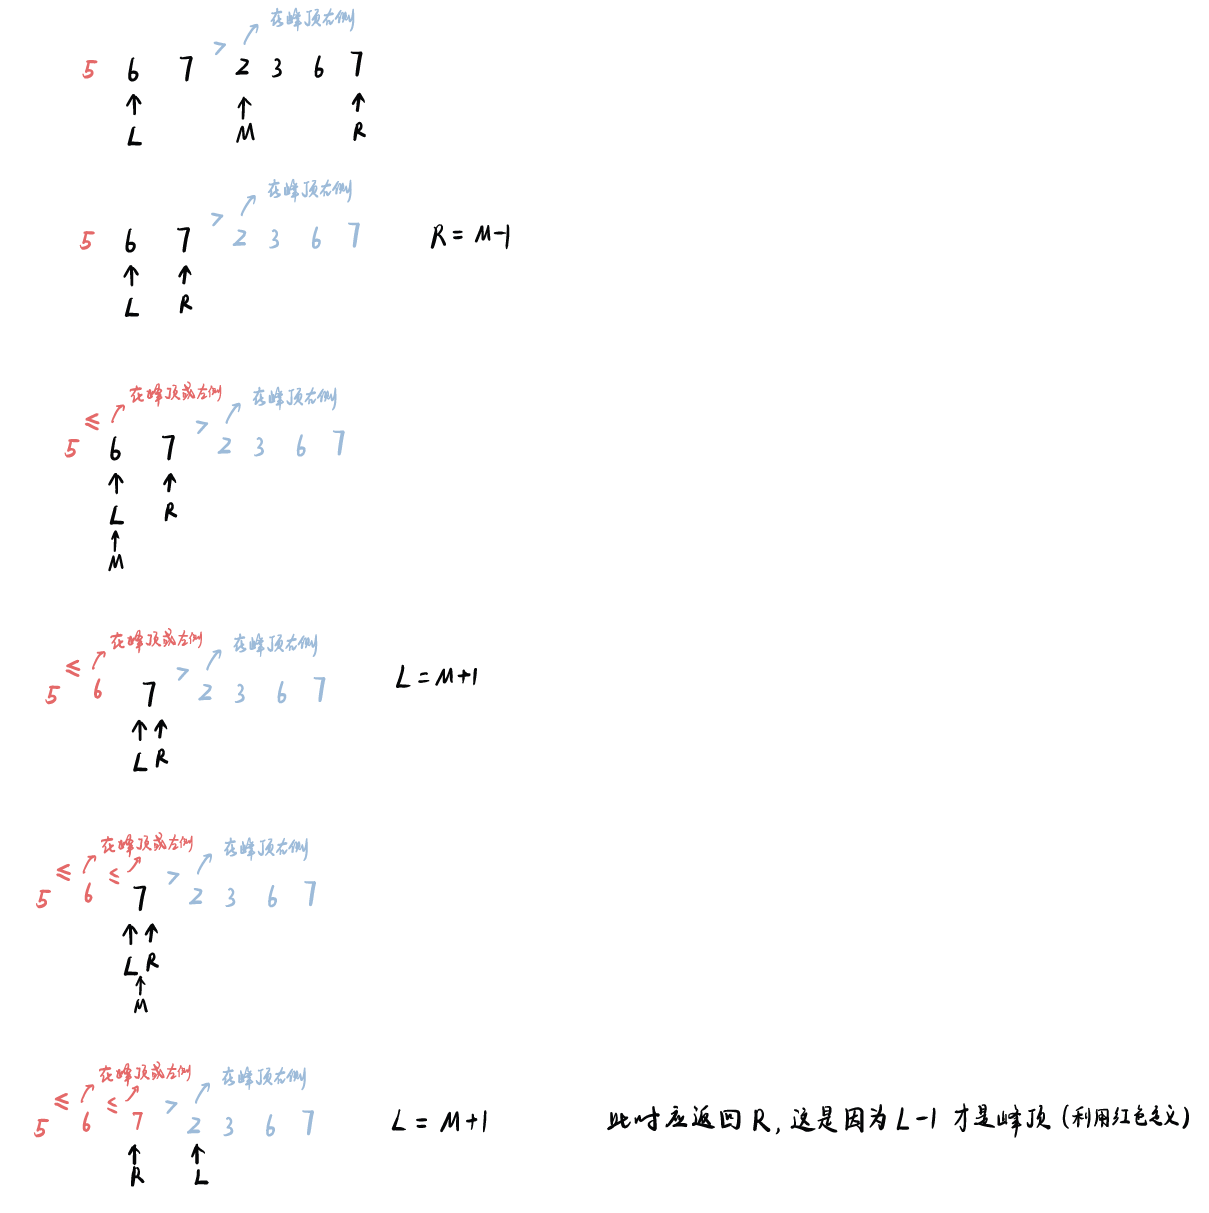 在峰顶右侧
>
5 6 7 2 3 6 7
L M R
在峰顶右侧
>
5 6 7 2 3 6 7 R = M-1
L R
在峰顶或左侧 在峰顶右侧
≤ >
5 6 7 2 3 6 7
L R
M
在峰顶或左侧 在峰顶右侧
≤ >
5 6 7 2 3 6 7 L = M+1
L R
在峰顶或左侧 在峰顶右侧
≤ ≤ >
5 6 7 2 3 6 7
L R
M
在峰顶或左侧 在峰顶右侧
≤ ≤ >
5 6 7 2 3 6 7 L = M+1 此时应返回 R, 这是因为 L-1 才是峰顶 (利用红色定义)
R L